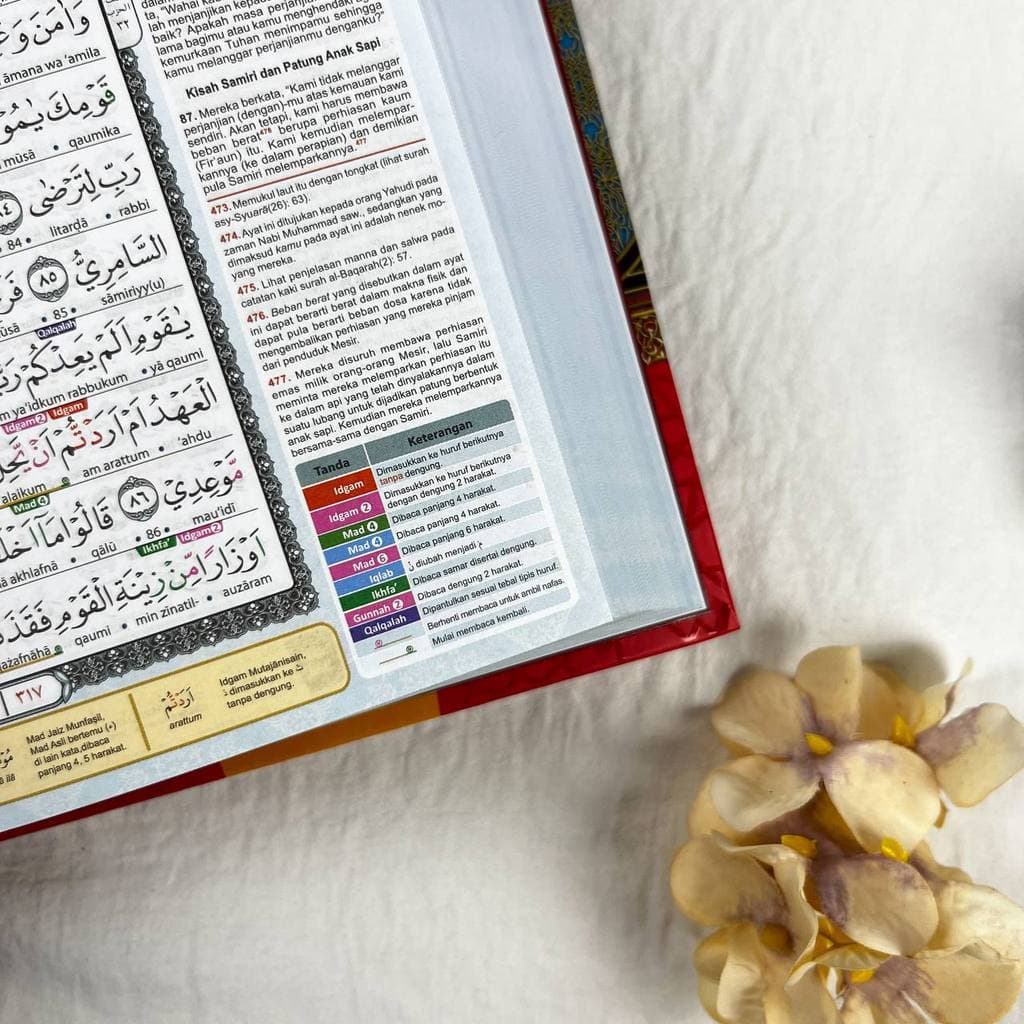 وَاٰمَنَ وَعَ
āmana wa 'amila
قَوْمِكَ يٰمُو
mūsā • qaumika
رَبِّ لِتَرْضٰى ٨٤
84 • litarḍā • rabbi
السَّامِرِيُّ ٨٥
85 • sāmiriyy(u)
Qalqalah
يٰقَوْمِ اَلَمْ يَعِدْكُمْ
ya'idkum rabbukum • yā qaumi
Idgam 2 Idgam
الْعَهْدُ اَمْ اَرَدْتُّمْ اَنْ يَّحِلَّ
'alaikum am arattum • 'ahdu
Mad 4
مَّوْعِدِيْ ٨٦ قَالُوْا مَآ
akhlafnā qālū • 86 • mau'idī
Ikhfa' Idgam 2
اَوْزَارًا مِّنْ زِيْنَةِ الْقَوْمِ
qaumi • min zīnatil- • auzāram
٣١٧
الحزب
٣٢
lah menjanjikan kepada
baik? Apakah masa perjanjian
lama bagimu atau kamu menghendaki agar
kemurkaan Tuhan menimpamu sehingga
kamu melanggar perjanjianmu denganku?"
Kisah Samiri dan Patung Anak Sapi
87. Mereka berkata, "Kami tidak melanggar
perjanjian (dengan)-mu atas kemauan kami
sendiri. Akan tetapi, kami harus membawa
beban berat476 berupa perhiasan kaum
(Fir'aun) itu. Kami kemudian melempar-
kannya (ke dalam perapian) dan demikian
pula Samiri melemparkannya.477
473. Memukul laut itu dengan tongkat (lihat surah
asy-Syuarā(26): 63).
474. Ayat ini ditujukan kepada orang Yahudi pada
zaman Nabi Muhammad saw., sedangkan yang
dimaksud kamu pada ayat ini adalah nenek mo-
yang mereka.
475. Lihat penjelasan manna dan salwa pada
catatan kaki surah al-Baqarah(2): 57.
476. Beban berat yang disebutkan dalam ayat
ini dapat berarti berat dalam makna fisik dan
dapat pula berarti beban dosa karena tidak
mengembalikan perhiasan yang mereka pinjam
dari penduduk Mesir.
477. Mereka disuruh membawa perhiasan
emas milik orang-orang Mesir, lalu Samiri
meminta mereka melemparkan perhiasan itu
ke dalam api yang telah dinyalakannya dalam
suatu lubang untuk dijadikan patung berbentuk
anak sapi. Kemudian mereka melemparkannya
bersama-sama dengan Samiri.
Tanda Keterangan
Idgam Dimasukkan ke huruf berikutnya
tanpa dengung.
Idgam 2 Dimasukkan ke huruf berikutnya
dengan dengung 2 harakat.
Mad 4 Dibaca panjang 4 harakat.
Mad 4 Dibaca panjang 4 harakat.
Mad 6 Dibaca panjang 6 harakat.
Iqlab نْ diubah menjadi م
Ikhfa' Dibaca samar disertai dengung.
Gunnah 2 Dibaca dengung 2 harakat.
Qalqalah Dipantulkan sesuai tebal tipis huruf.
Berhenti membaca untuk ambil nafas.
Mulai membaca kembali.
Mad Jaiz Munfaṣil,
Mad Asli bertemu (ء)
di lain kata,dibaca
panjang 4, 5 harakat.
اَرَدْتُّمْ
arattum
Idgam Mutajānisain,
د dimasukkan ke ت
tanpa dengung.